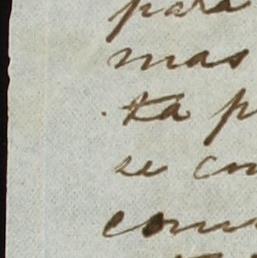 para
mas
ta p
se co
com